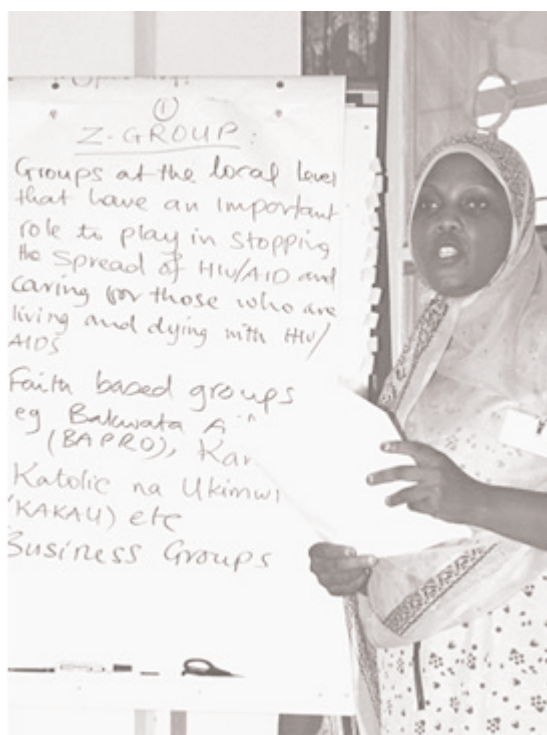 ①
Z-GROUP:
Groups at the local level
that have an important
role to play in stopping
the Spread of HIV/AID and
caring for those who are
living and dying with HIV/
AIDS
Faith based groups
eg Bakwata
(BAPRO), Kar
Katolic na Ukimwi
(KAKAU) etc
Business Groups